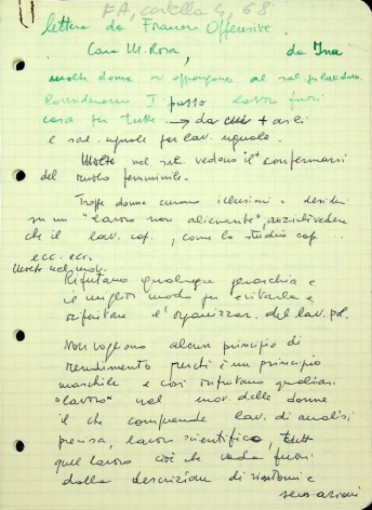 FA, cartella 4, 68
lettera da Frauen Offensive.
Cara M. Rosa, da Ina
molte donne si oppongono al sal.
Considerano I passo lavoro fuori
casa per tutte → + asili
e sal. uguale per lav. uguale.
Molte nel sal. vedono il confermarsi
del ruolo femminile.
Troppe donne curano illusioni e desideri
su un "lavoro non alienante", anziché vedere
che il lav. cap., come lo studio cap...
ecc. ecc.
Molte nel mov.
Rifiutano qualunque gerarchia e
il miglior modo per evitarla e
rifiutare l'organizzaz. del lav. pol.
Non vogliono alcun principio di
rendimento perché è un principio
maschile e così rifiutano qualsiasi
"lavoro" nel mov. delle donne
il che comprende lav. di analisi
precisa, lavoro scientifico,
quel lavoro cioè che vada fuori
dalla descrizione di sintomi e
sensazioni